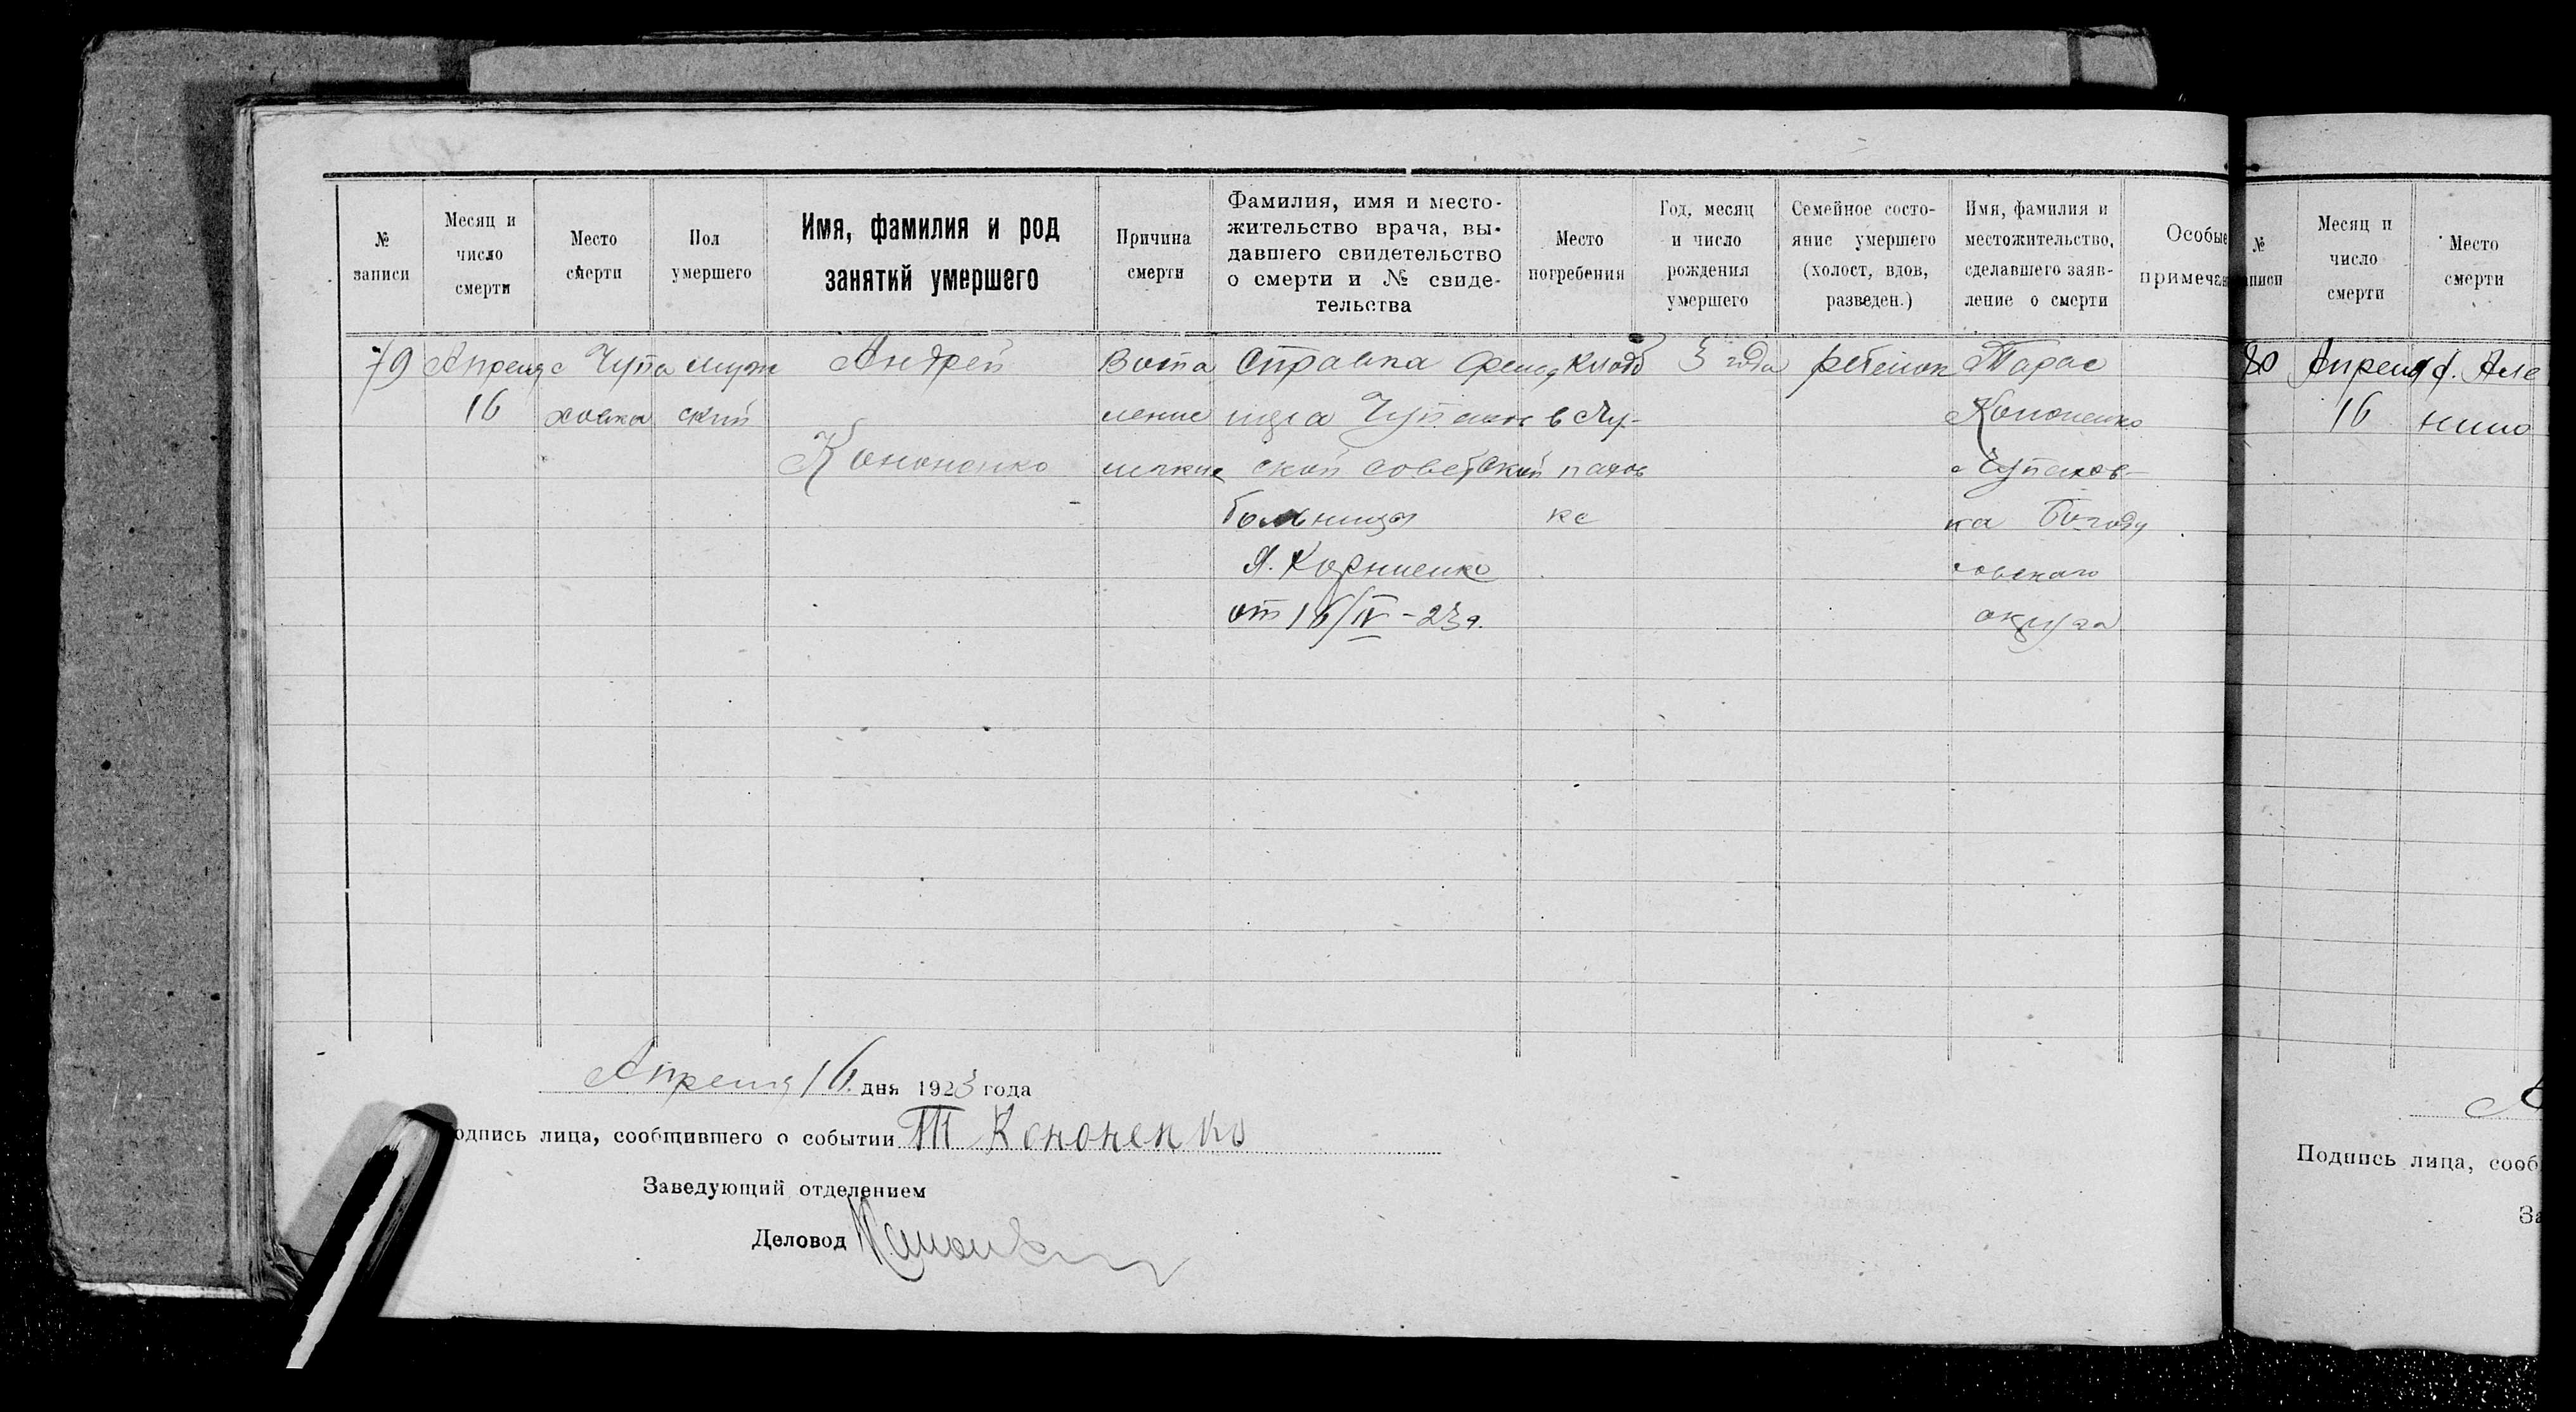 № записи
Месяц и число смерти
Место смерти
Пол умершего
Имя, фамилия и род занятий умершего
Причина смерти
Фамилия, имя и место-
жительство врача, вы-
давшего свидетельство
о смерти и № свиде-
тельства
Место погребения
Год, месяц
и число
рождения
умершего
Семейное состо-
яние умершего
(холост, вдов,
разведен.)
Имя, фамилия и
местожительство,
сделавшего заяв-
ление о смерти
Особые
примечан
79
Апреля
16
с Чупа
ховка
муж
ской
Андрей
Кононенко
Воспа
ление
легких
Справка
Чупахов
ской советской
больницы
Я. Корниенко
от 16/IV-23 г.
Кладб
в Чу-
пахов
ке
3 года
ребенок
Тарас
Кононенко
с Чупахов-
ка Богоду
ховского
округа
Апреля 16 дня 1923 года
одпись лица, сообщившего о событии Т Кононенко
Заведующий отделением
Деловод
№
аписи
Месяц и
число
смерти
Место
смерти
80
Апреля
16
Подпись лица, сооб
За